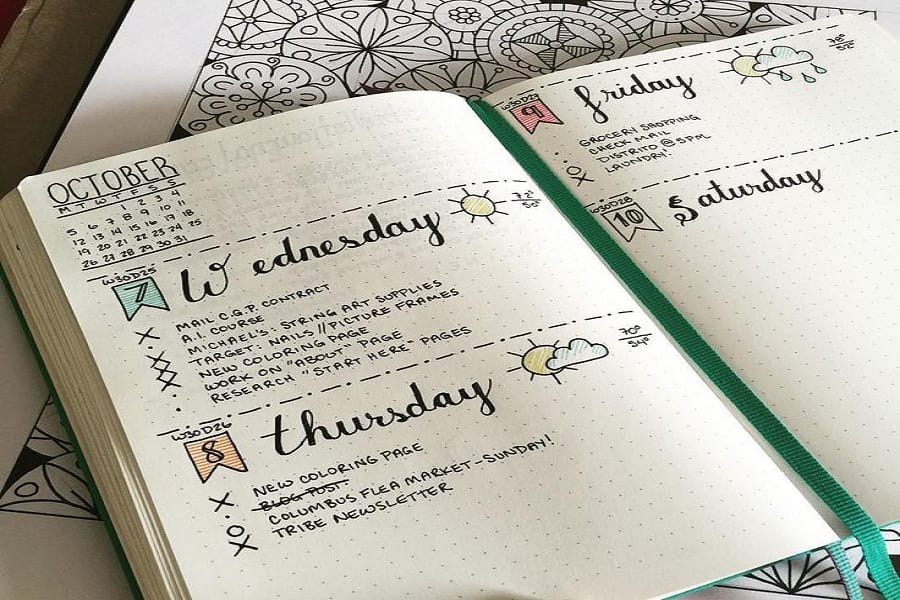 OCTOBER
M T W T F S S
1 2 3 4
5 6 7 8 9 10 11
12 13 14 15 16 17 18
19 20 21 22 23 24 25
26 27 28 29 30 31
W30D25
7 Wednesday 72° 50°
X MAIL C.G.P. CONTRACT
A.I. COURSE
X MICHAEL'S: STRING ART SUPPLIES
X TARGET: NAILS // PICTURE FRAMES
X NEW COLORING PAGE
X WORK ON "ABOUT" PAGE
· RESEARCH "START HERE" PAGES
W30D26
8 thursday 70° 54°
X NEW COLORING PAGE
· BLOG POST
O COLUMBUS FLEA MARKET - SUNDAY!
X TRIBE NEWSLETTER
W30D27
9 friday 78° 52°
· GROCERY SHOPPING
· CHECK MAIL
O DISTRITO @ 5PM
X LAUNDRY!
W30D28
10 Saturday